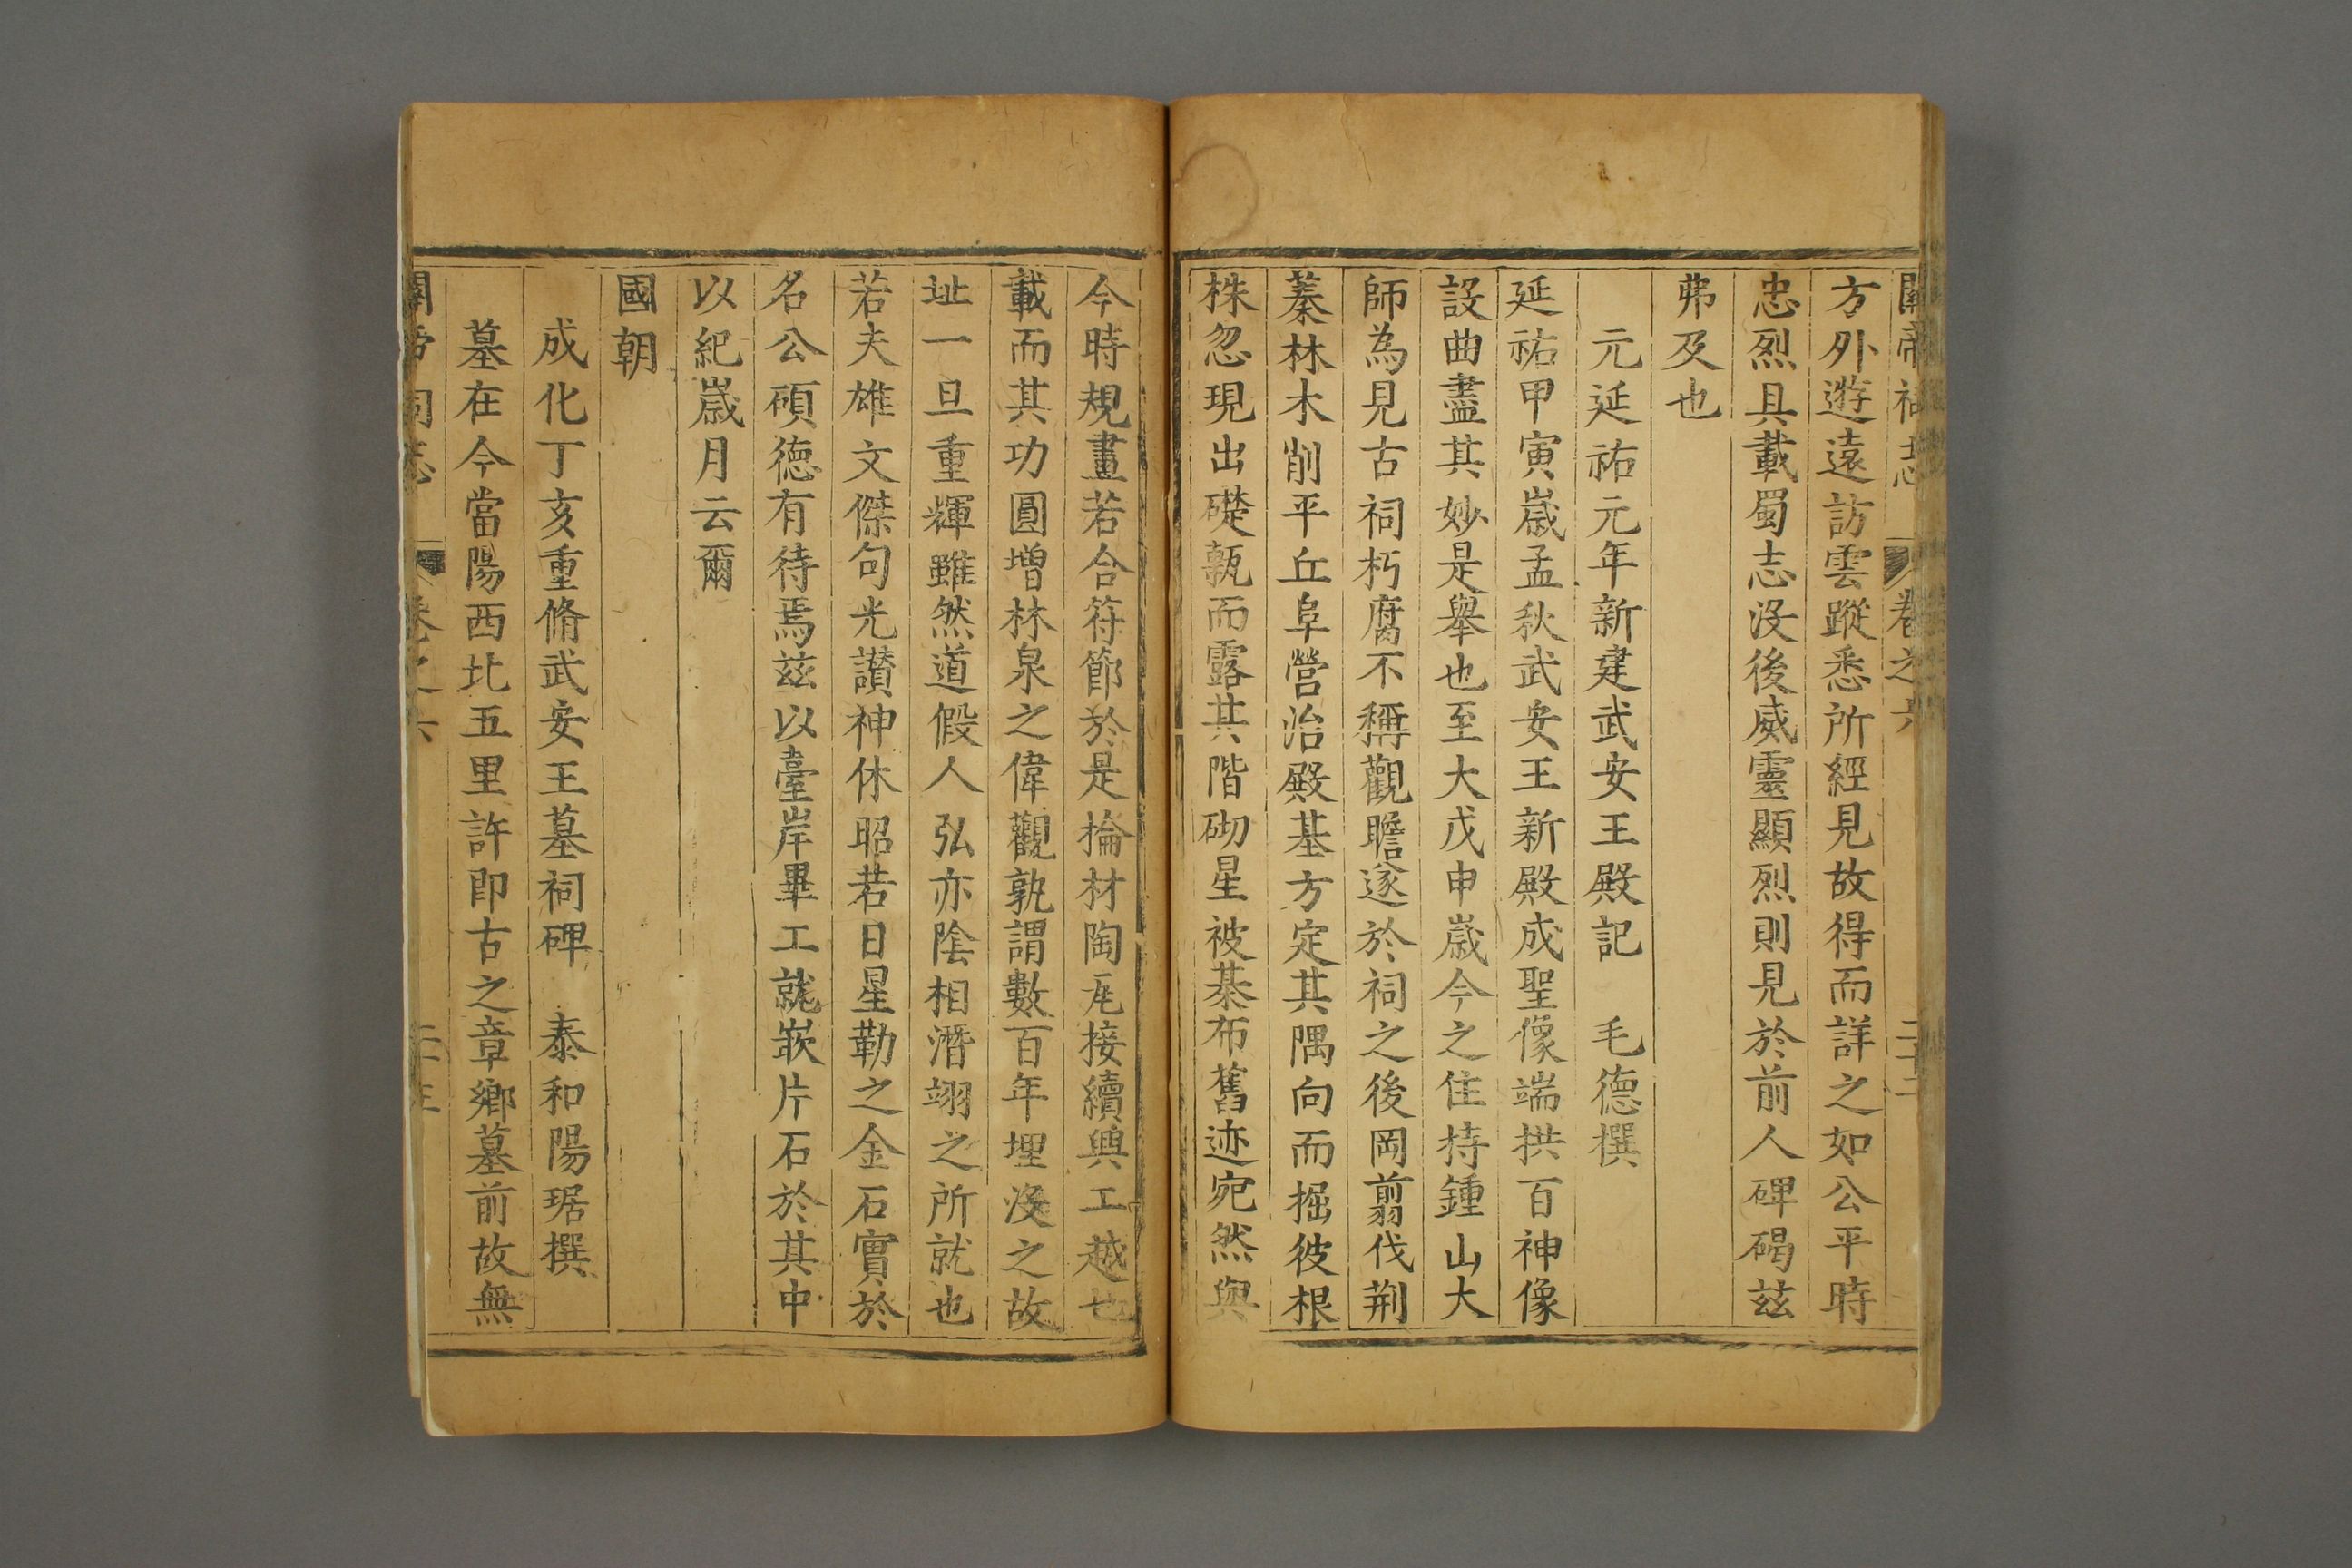 關帝祠志 卷之六 二十二
方外遊遠訪雲蹤悉所經見故得而詳之如公平時
忠烈具載蜀志沒後威靈顯烈則見於前人碑碣茲
弗及也
元延祐元年新建武安王殿記 毛德撰
延祐甲寅歲孟秋武安王新殿成聖像端拱百神像
設曲盡其妙是舉也至大戊申歲今之住持鍾山大
師為見古祠朽腐不稱觀瞻遂於祠之後岡翦伐荆
蓁林木削平丘阜營治殿基方定其隅向而掘彼根
株忽現出礎甎而露其階砌星被棊布舊迹宛然與
今時規畫若合符節於是掄材陶瓦接續興工越也
載而其功圓增林泉之偉觀孰謂數百年埋沒之故
址一旦重輝雖然道假人弘亦陰相潛翊之所就也
若夫雄文傑句光讚神休昭若日星勒之金石實於
名公碩德有待焉茲以臺岸畢工就嵌片石於其中
以紀歲月云爾
國朝
成化丁亥重脩武安王墓祠碑 泰和陽琚撰
墓在今當陽西北五里許即古之章鄉墓前故無
關帝祠志 卷之六